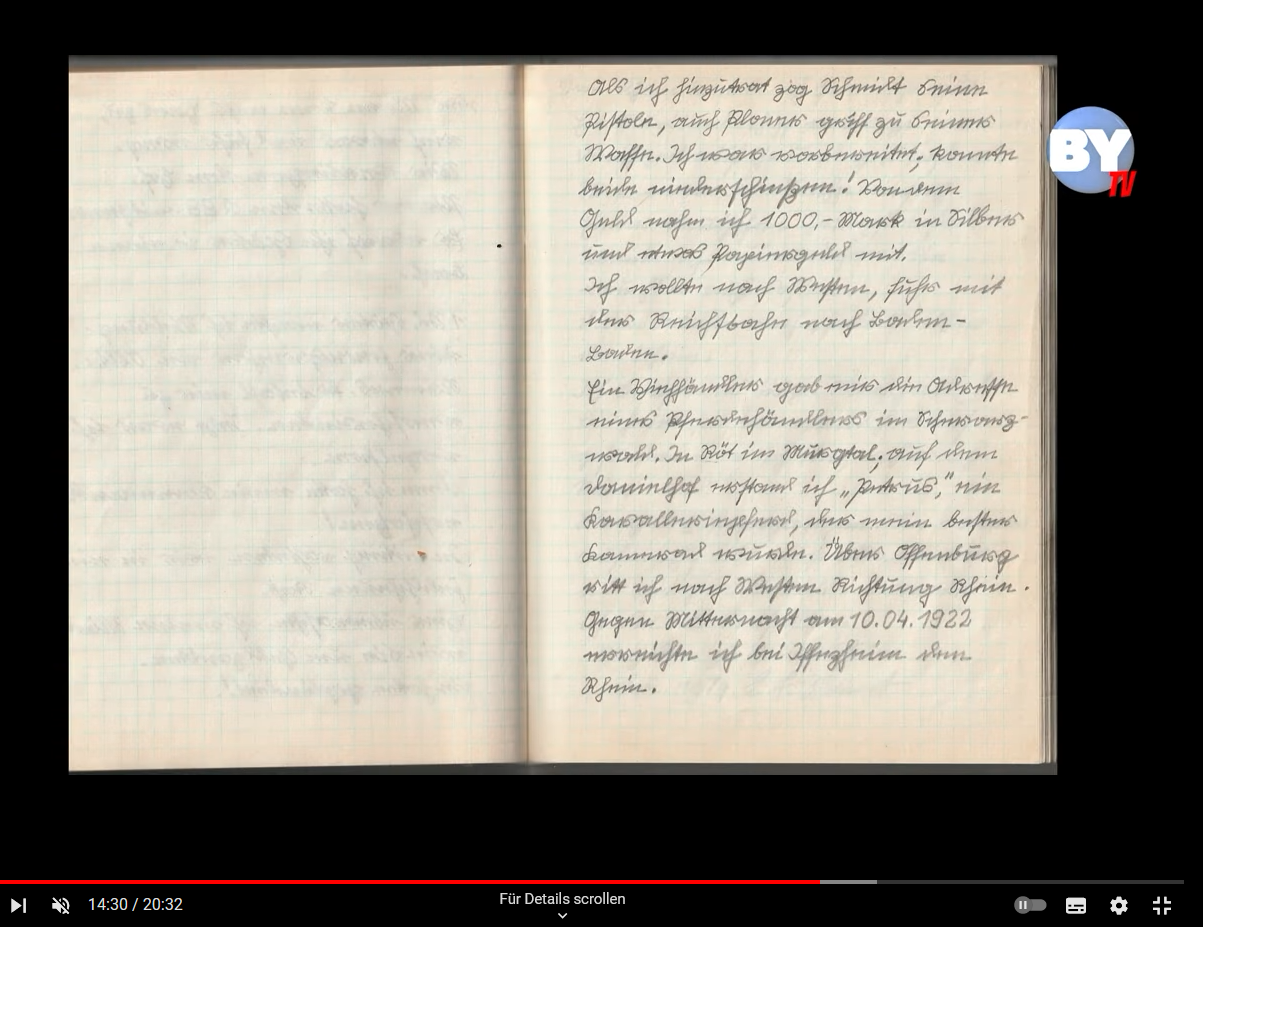 Als ich hinzutrat zog Schmidt seine
Pistole, auch Ploner griff zu seiner
Waffe. Ich war vorbereitet; konnte
beide niederschießen! Von dem
Geld nahm ich 1000,- Mark in Silber
und etwas Papiergeld mit.
Ich wollte nach Westen, fuhr mit
der Reichsbahn nach Baden-
Baden.
Ein Viehhändler gab mir die Adresse
eines Pferdehändlers im Schwarz-
wald. In Röt im Murgtal; auf dem
Danielhof erstand ich „Petrus", ein
Kavalleriepferd, der mein bester
Kamerad wurde. Über Offenburg
ritt ich nach Westen Richtung Rhein.
Gegen Mitternacht am 10.04.1922
erreichte ich bei Iffezheim den
Rhein.
BY
TV
14:30 / 20:32
Für Details scrollen